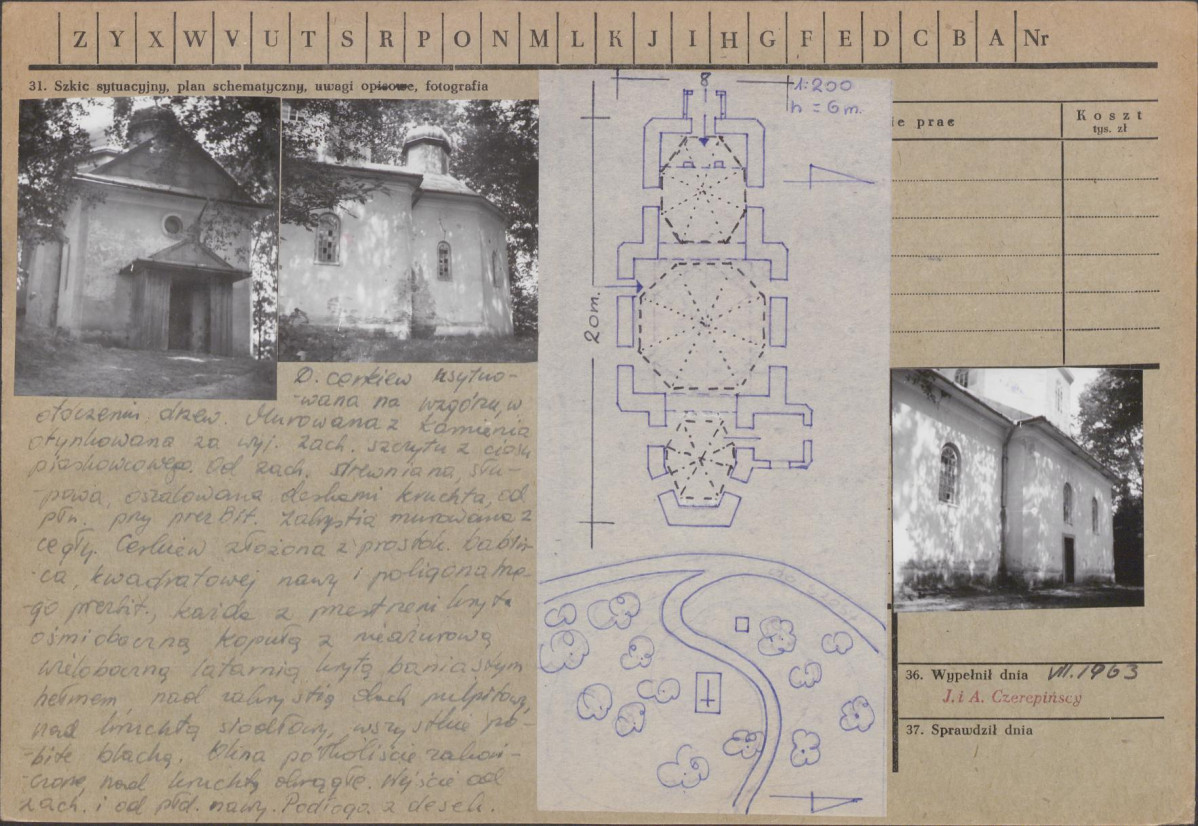 Z Y X W V U T S R P O N M L K J I H G F E D C B A Nr
31. Szkic sytuacyjny, plan schematyczny, uwagi opisowe, fotografia
8
1:200
h = 6m.
20m.
ie prac
Koszt
tys. zł
D. cerkiew usytuo-
-wana na wzgórzu, w
otoczeniu drzew. Murowana z kamienia
otynkowana za wyj. zach. szczytu z ciosu
piaskowcowego. Od zach. drewniana, słu-
-powa, oszalowana deskami kruchta, od
płn. przy prezbit. zakrystia murowana z
cegły. Cerkiew złożona z prostok. babiń-
-ca, kwadratowej nawy i poligonalne-
-go prezbit., każda z przestrzeni kryta
ośmioboczną kopułą z nieażurową
wieloboczną latarnią krytą baniastym
hełmem, nad zakrystią dach pulpitowy,
nad kruchtą siodłowy, wszystkie po-
-bite blachą. Okna półkoliście zakoń-
-czone, nad kruchtą okrągłe. Wejście od
zach. i od płd. nawy. Podłoga z desek.
36. Wypełnił dnia VII.1963
J. i A. Czerepińscy
37. Sprawdził dnia